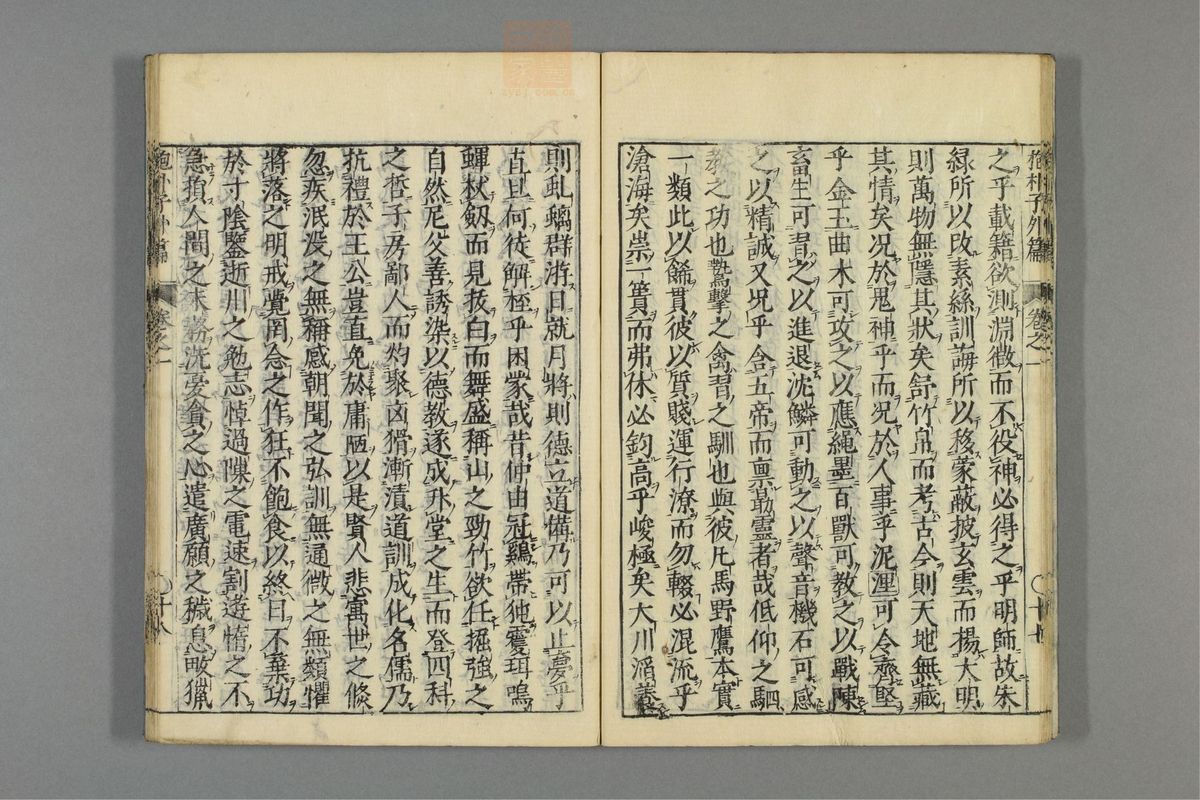 抱朴子外篇 卷之一 〇十七
之乎載籍欲測淵微而不役神必得之乎明師故朱
緑所以改素絲訓誨所以移蒙蔽披玄雲而揚大明
則萬物無隱其狀矣舒竹帛而考古今則天地無藏
其情矣况於鬼神乎而况於人事乎泥涅可令齊堅
乎金玉曲木可攻之以應繩墨百獸可教之以戰陳
畜生可習之以進退沈鱗可動之以聲音機石可感
之以精誠又况乎含五帝而禀最靈者哉低仰之駟
教之功也鷙擊之禽習之馴也與彼凡馬野鷹本實
一類此以餙貴彼以質賤運行潦而勿輟必混流乎
滄海矣崇一簣而弗休必鈞高乎峻極矣大川滔瀁
則虬螭群游日就月將則德立道備乃可以正夢乎
丘旦何徒解桎乎困蒙哉昔仲由冠鷄帶㹠霍珥鳴
蟬杖劔而見拔白而舞盛稱山之勁竹欲任掘強之
自然尼父善誘染以德教遂成升堂之生而登四科
之哲子房鄙人而灼聚凶猾漸漬道訓成化名儒乃
抗禮於王公豈直免於庸陋以是賢人悲寓世之倐
忽疾泯没之無稱感朝聞之弘訓無通微之無類懼
將落之明戒覺罔念之作狂不飽食以終日不棄功
於寸陰鑒逝川之勉志悼過隙之電速割遊惰之不
急損人間之末務洗憂貧之心遣廣願之穢息畋獵
抱朴子外篇 卷之一 〇十八